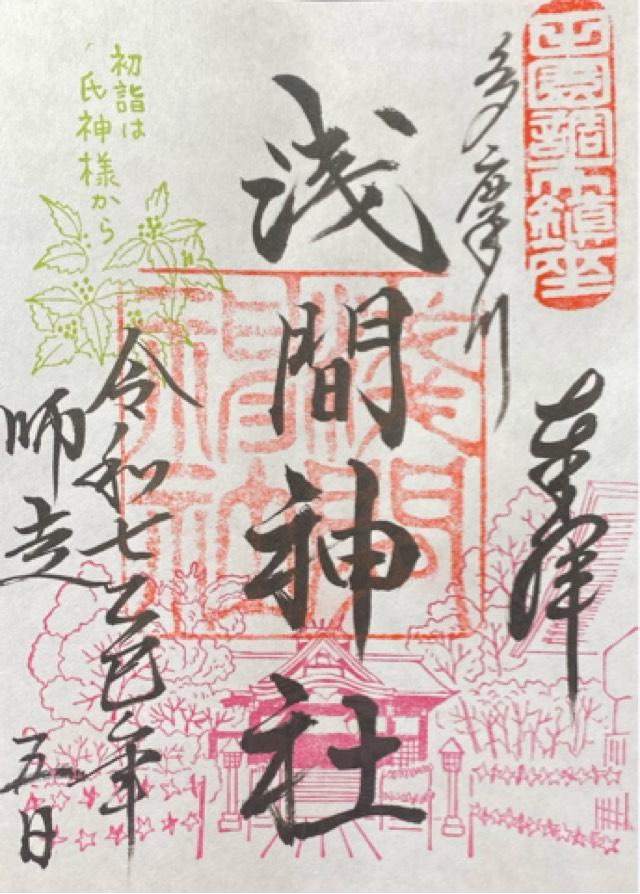 田園調布鎮座
奉拝
多摩川
浅間神社
淺間
神社
初詣は
氏神様から
令和七乙巳年
師走 五日